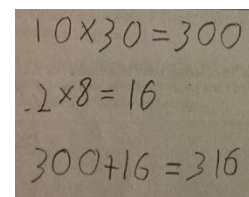 10×30=300
2×8=16
300+16=316